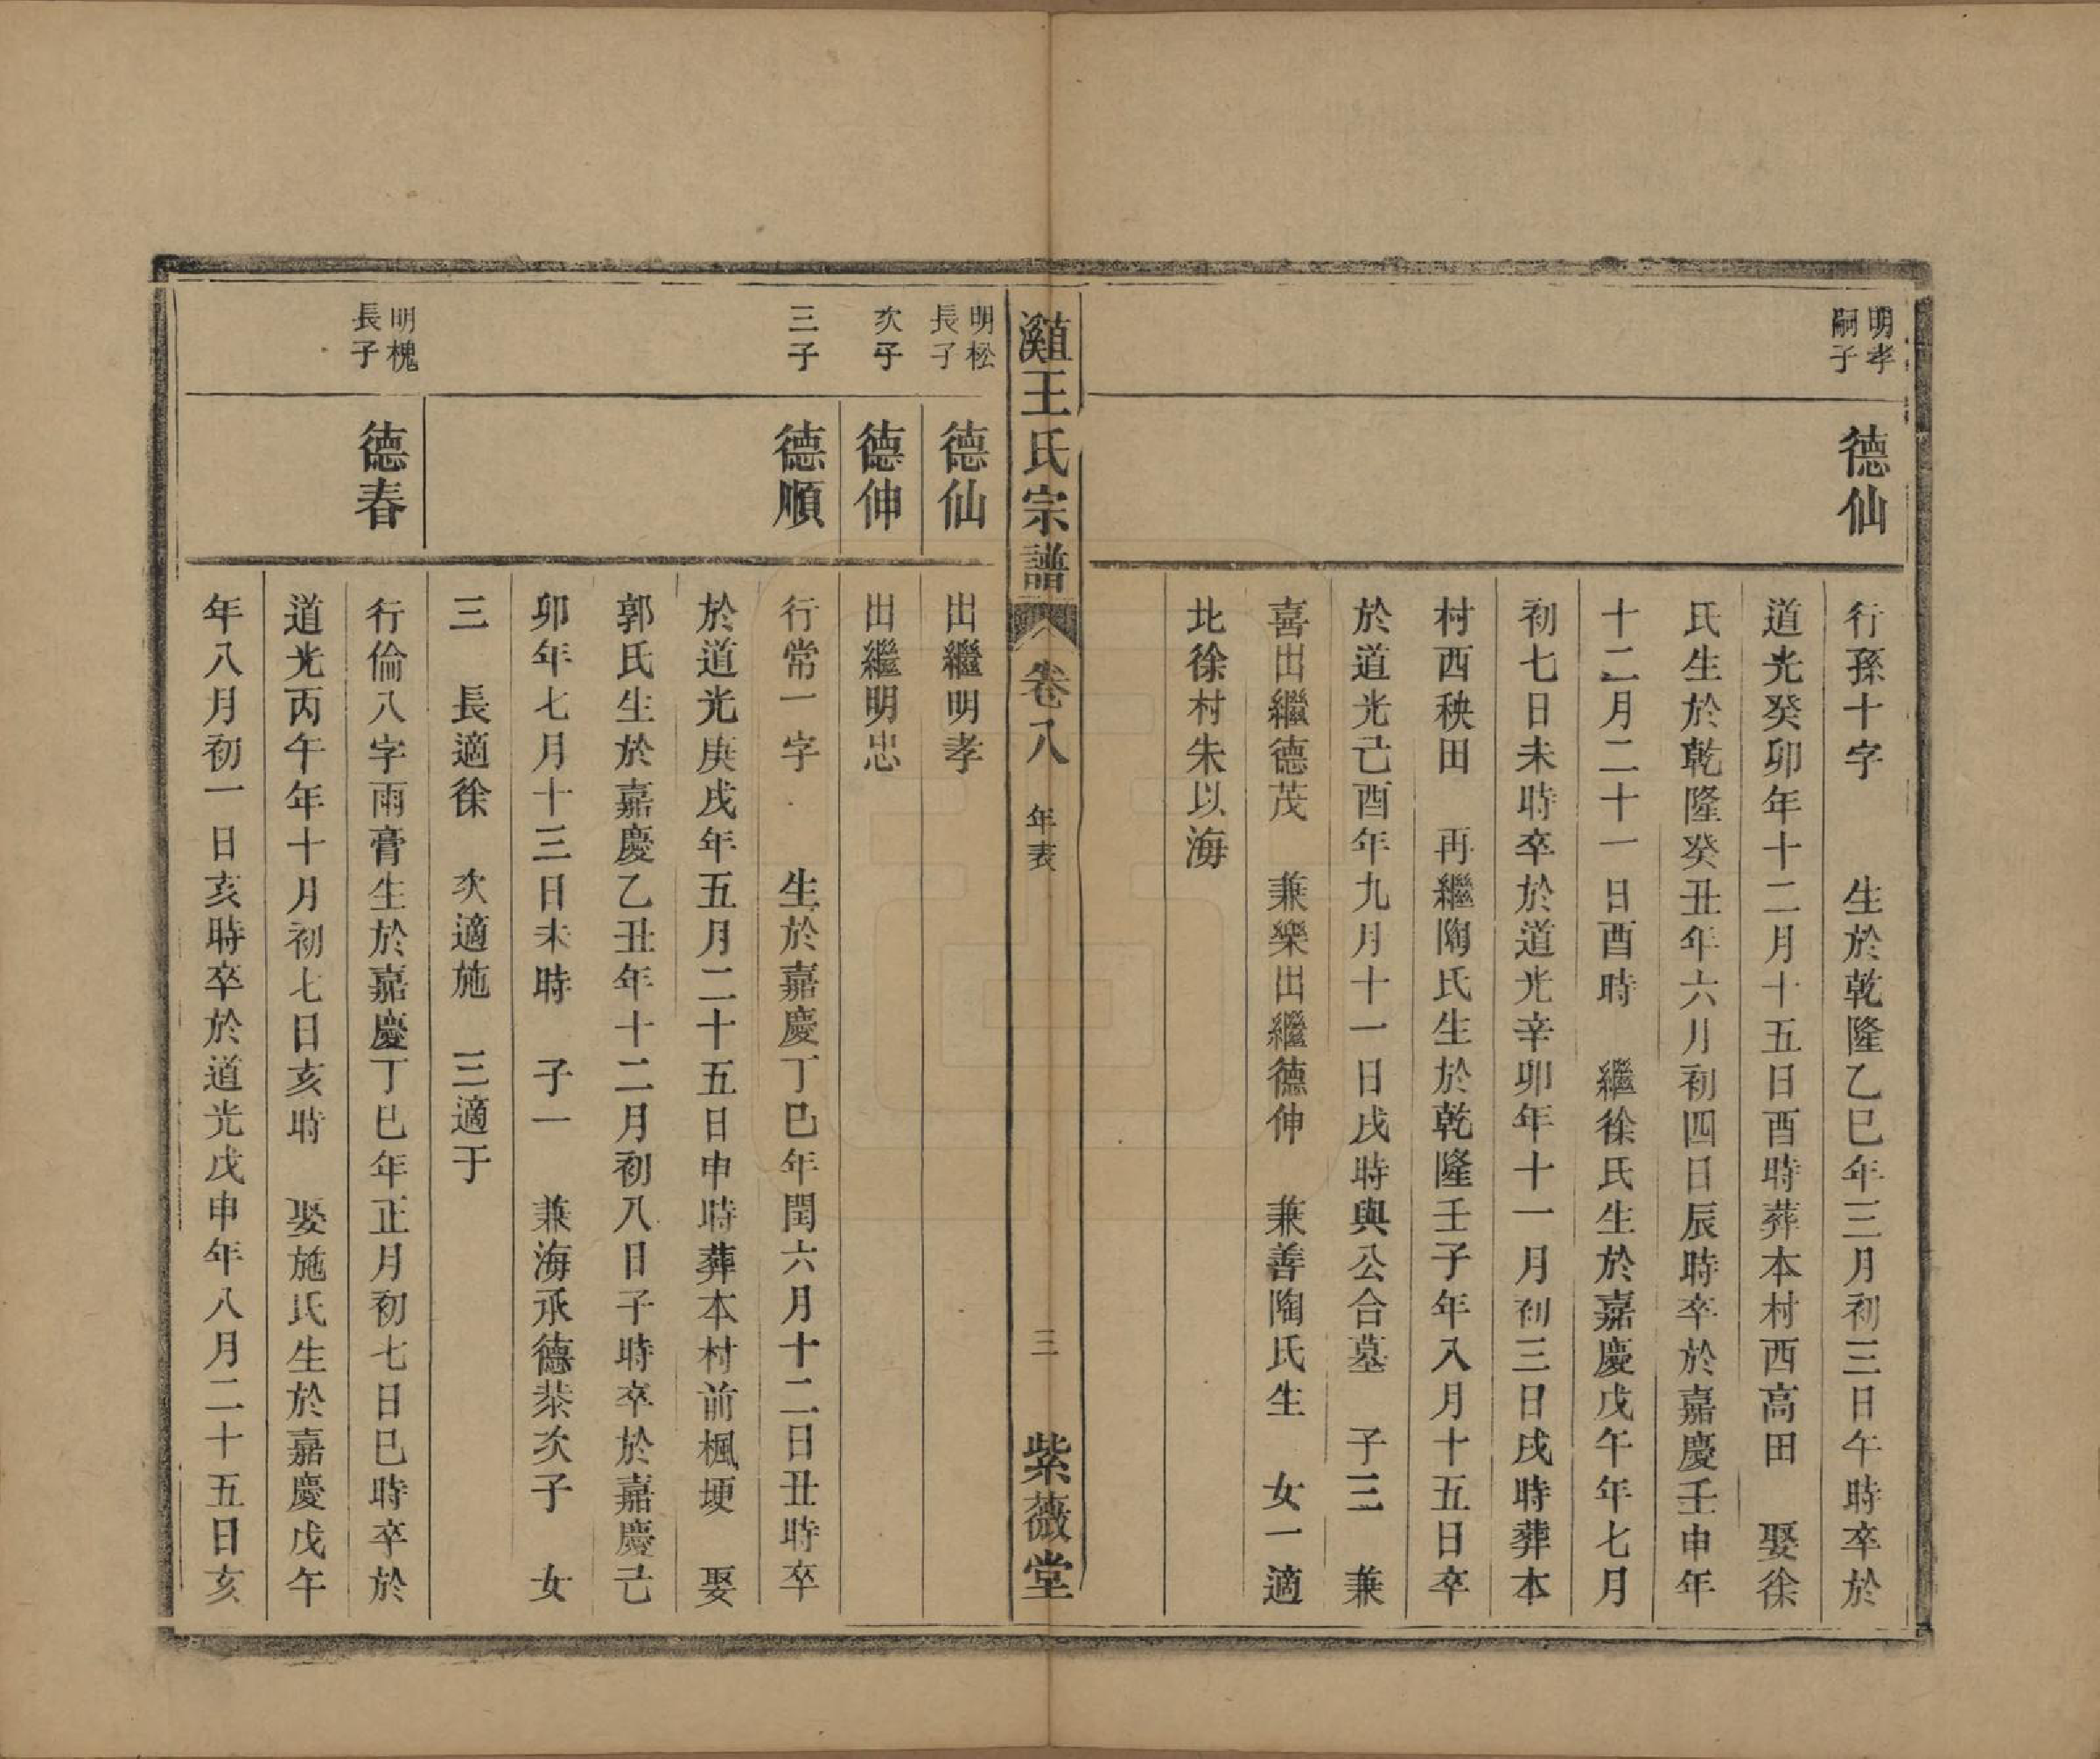 明孝
嗣子
德仙
行孫十字　生於乾隆乙巳年三月初三日午時卒於
道光癸卯年十二月十五日酉時葬本村西高田　娶徐
氏生於乾隆癸丑年六月初四日辰時卒於嘉慶壬申年
十二月二十一日酉時　繼徐氏生於嘉慶戊午年七月
初七日未時卒於道光辛卯年十一月初三日戌時葬本
村西秧田　再繼陶氏生於乾隆壬子年八月十五日卒
於道光己酉年九月十一日戌時與公合墓　子三　兼
喜出繼德茂　兼樂出繼德伸　兼善陶氏生　女一適
北徐村朱以海
王氏宗譜　卷八　年表　三　紫薇堂
明松
長子
德仙
出繼明孝
次子
德伸
出繼明忠
三子
德順
行常一字　生於嘉慶丁巳年閏六月十二日丑時卒
於道光庚戌年五月二十五日申時葬本村前楓埂　娶
郭氏生於嘉慶乙丑年十二月初八日子時卒於嘉慶己
卯年七月十三日未時　子一　兼海承德恭次子　女
三　長適徐　次適施　三適于
明槐
長子
德春
行倫八字雨膏生於嘉慶丁巳年正月初七日巳時卒於
道光丙午年十月初七日亥時　娶施氏生於嘉慶戊午
年八月初一日亥時卒於道光戊申年八月二十五日亥